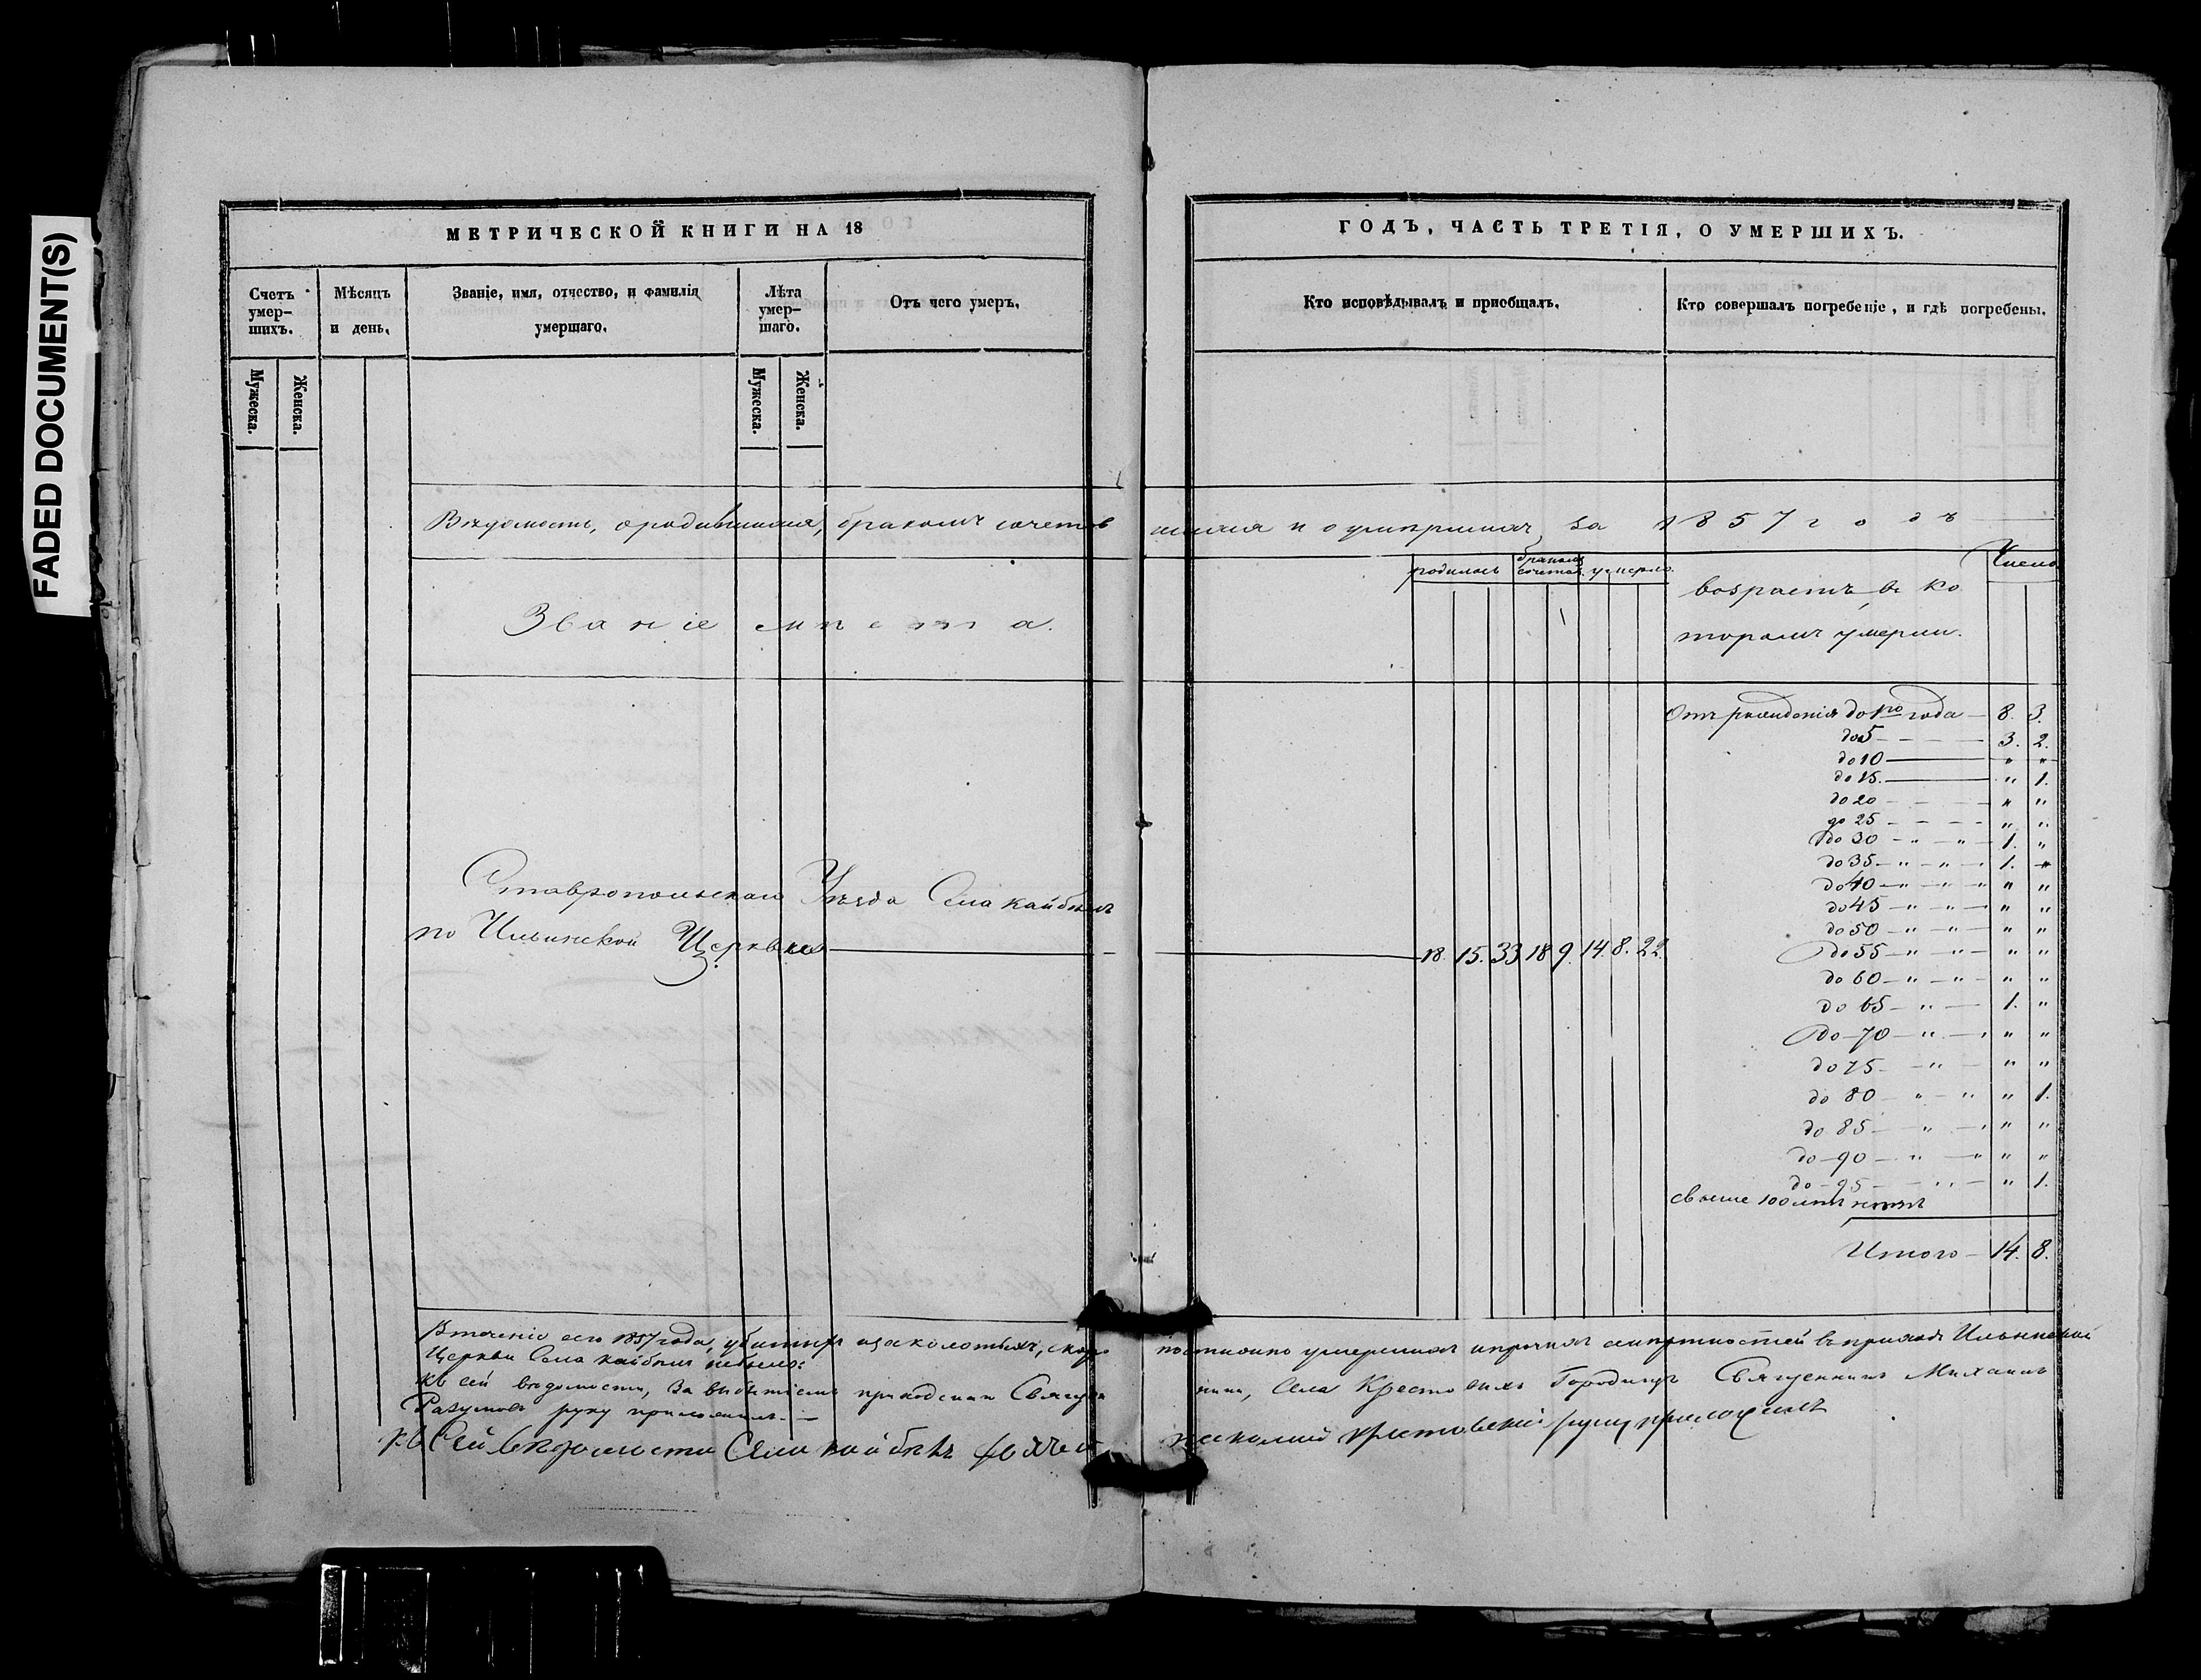 FADED DOCUMENT(S)
МЕТРИЧЕСКОЙ КНИГИ НА 18
ГОДЪ, ЧАСТЬ ТРЕТІЯ, О УМЕРШИХЪ.
Счетъ умер-
шихъ.
Мѣсяцъ
и день.
Званіе, имя, отчество, и фамилія
умершаго.
Лѣта
умер-
шаго.
Отъ чего умеръ.
Кто исповѣдывалъ и пріобщалъ.
Кто совершалъ погребеніе, и гдѣ погребены.
Мужеска.
Женска.
Мужеска.
Женска.
Вѣдомость, о родившихся, бракомъ сочетавшихся и о умершихъ за 1857 годъ
Званіе мѣста.
родилось
бракомъ сочетал.
умерло.
возрастъ, въ ко
торомъ умерли.
Число
Отъ рожденія до 1го года — 8. 3.
до 5 — 3. 2.
до 10 — " "
до 15. — " 1.
до 20 — " "
до 25 — " "
до 30 — " — " — 1. "
до 35 — " — " — 1. "
до 40 — " — " — " "
до 45 — " — " — " "
до 50 — " — " — " "
До 55 — " — " — " "
до 60 — " — " — " "
до 65 — " — 1. "
До 70 — " — " "
до 75 — " — " "
до 80 — " — " " 1.
до 85 — " — " "
до 90 — " — " " "
до 95 — " — " 1.
свыше 100 лѣтъ нѣтъ
Итого — 14. 8.
Ставропольскаго Уѣзда Села Кайбелъ
по Ильинской Церкви — 18. 15. 33 18 9. 14. 8. 22.
Въ теченіе сего 1857 года, убитыхъ и заколотыхъ, скоропостижно умершихъ и прочихъ смертностей въ приходѣ Ильинской
Церкви Села Кайбелъ небыло:
Къ сей вѣдомости, За выбытіемъ приходскаго Священника, Села Крестовыхъ Городищъ Священникъ Михаилъ
Разумовъ руку приложилъ. —
Къ Сей вѣдомости Села Кайбелъ руку приложилъ